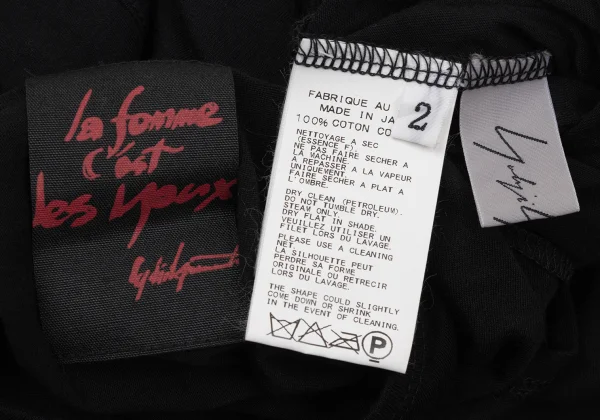 la femme
c'est
les yeux
FABRIQUE AU
MADE IN JA
100% COTON CO
2
NETTOYAGE A SEC
(ESSENCE F).
NE PAS FAIRE SECHER A
LA MACHINE.
A REPASSER A LA VAPEUR
UNIQUEMENT.
FAIRE SECHER A PLAT A
L'OMBRE.
DRY CLEAN (PETROLEUM).
DO NOT TUMBLE DRY.
STEAM ONLY.
DRY FLAT IN SHADE.
VEUILLEZ UTILISER UN
FILET LORS DU LAVAGE.
PLEASE USE A CLEANING
NET.
LA SILHOUETTE PEUT
PERDRE SA FORME
ORIGINALE OU RETRECIR
LORS DU LAVAGE.
THE SHAPE COULD SLIGHTLY
COME DOWN OR SHRINK
IN THE EVENT OF CLEANING.
P